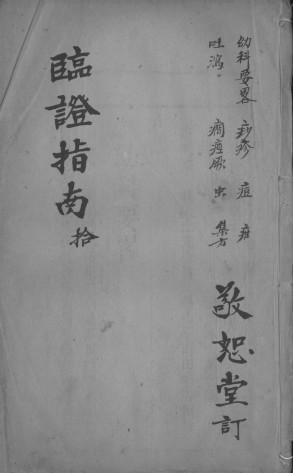 幼科要畧 痧疹 痘 疳
吐瀉 癎痙厥 虫 集方
敬恕堂訂
臨證指南拾